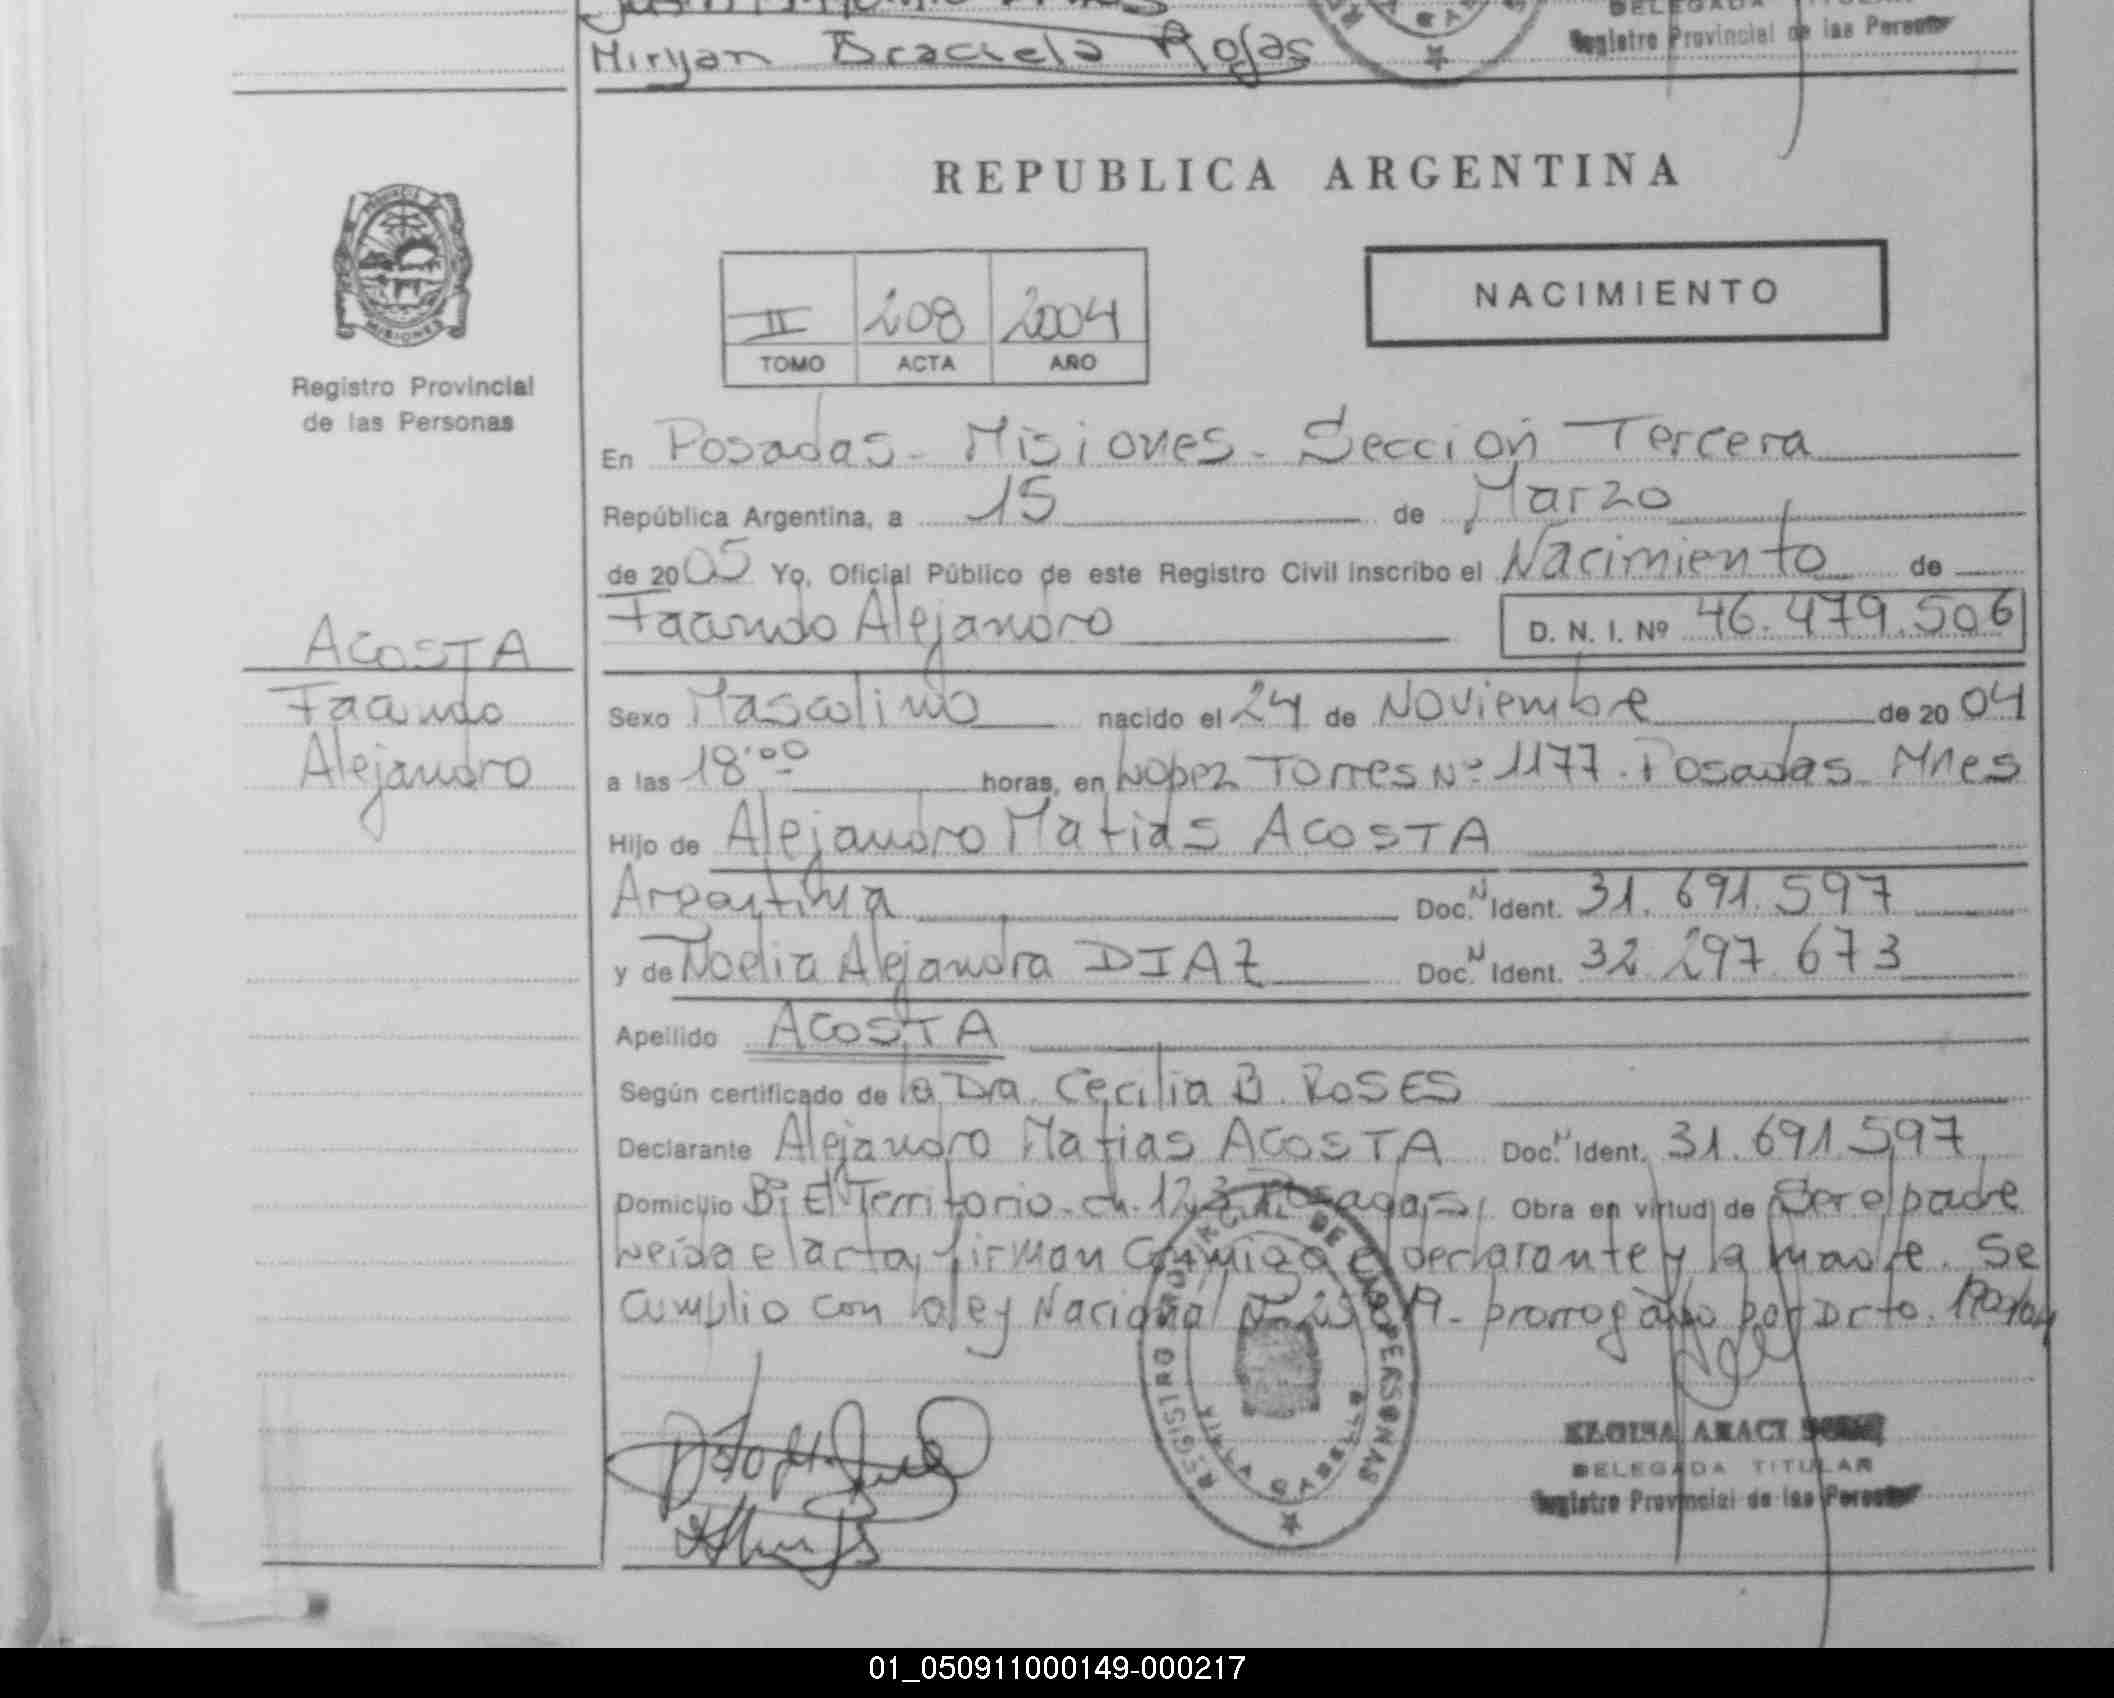 Miryan Graciela Rojas
DELEGADA TITULAR
Registro Provincial de las Personas
REPUBLICA ARGENTINA
PROVINCIA
MISIONES
Registro Provincial
de las Personas
II 208 2004
TOMO ACTA AÑO
NACIMIENTO
En Posadas - Misiones - Sección Tercera
República Argentina, a 15 de Marzo
de 2005 Yo, Oficial Público de este Registro Civil inscribo el Nacimiento de
Facundo Alejandro D. N. I. Nº 46.479.506
ACOSTA
Facundo
Alejandro
Sexo Masculino nacido el 24 de Noviembre de 2004
a las 18:00 horas, en Lopez Torres Nº 1177. Posadas - Mnes
Hijo de Alejandro Matias ACOSTA
Argentina Doc. N Ident. 31.691.597
y de Noelia Alejandra DIAZ Doc. N Ident. 32.297.673
Apellido ACOSTA
Según certificado de la Dra. Cecilia B. ROSES
Declarante Alejandro Matias ACOSTA Doc. N Ident. 31.691.597
Domicilio Bº El Territorio - ch. 123 Posadas Obra en virtud de Ser el padre
Leida el acta, firman conmigo el declarante y la madre. Se
cumplio con la ley Nacional Nº prorrogado por Dcto.
REGISTRO PROVINCIAL DE LAS PERSONAS
ELOISA ARACI
DELEGADA TITULAR
Registro Provincial de las Personas
01_050911000149-000217